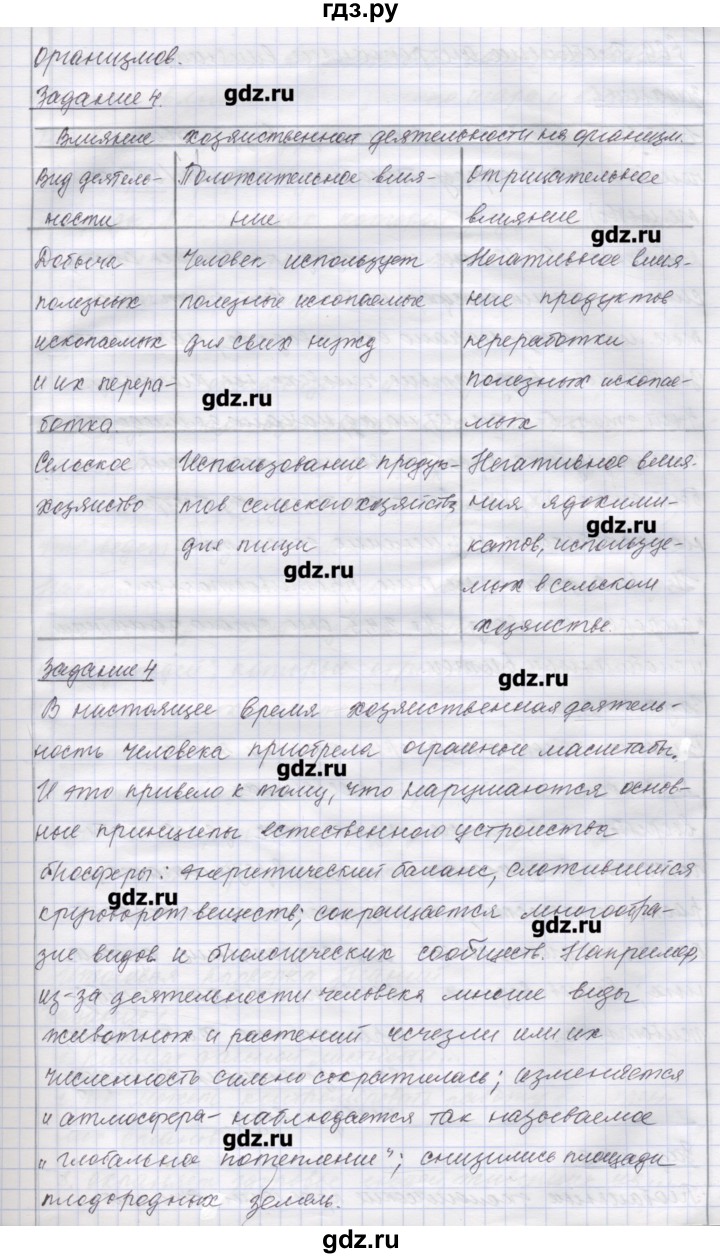 гдз.ру
организмов.
Задание 4.
gdz.ru
Влияние хозяйственной деятельности на организм.
Вид деятель- Положительное влия- отрицательное
ности ние влияние
gdz.ru
Добыча Человек использует Негативное влия-
полезных полезные ископаемые ние продуктов
ископаемых для своих нужд переработки
и их перера- полезных ископае-
gdz.ru
ботка. мых
Сельское Использование продук- Негативное влия-
хозяйство тов сельского хозяйства ния ядохими-
gdz.ru
для пищи катов, используе-
gdz.ru
мых в сельском
хозяйстве.
Задание 4
gdz.ru
В настоящее время хозяйственная деятель-
ность человека приобрела огромные масштабы.
gdz.ru
И это привело к тому, что нарушаются основ-
ные принципы естественного устройства
биосферы: энергетический баланс, сложившийся
gdz.ru
круговорот веществ; сокращается многообра-
gdz.ru
зие видов и биологических сообществ. Например,
из-за деятельности человека многие виды
животных и растений исчезли или их
численность сильно сократилась; изменяется
и атмосфера - наблюдается так называемое
gdz.ru
"глобальное потепление"; снизились площади
плодородных земель.
гдз.ру